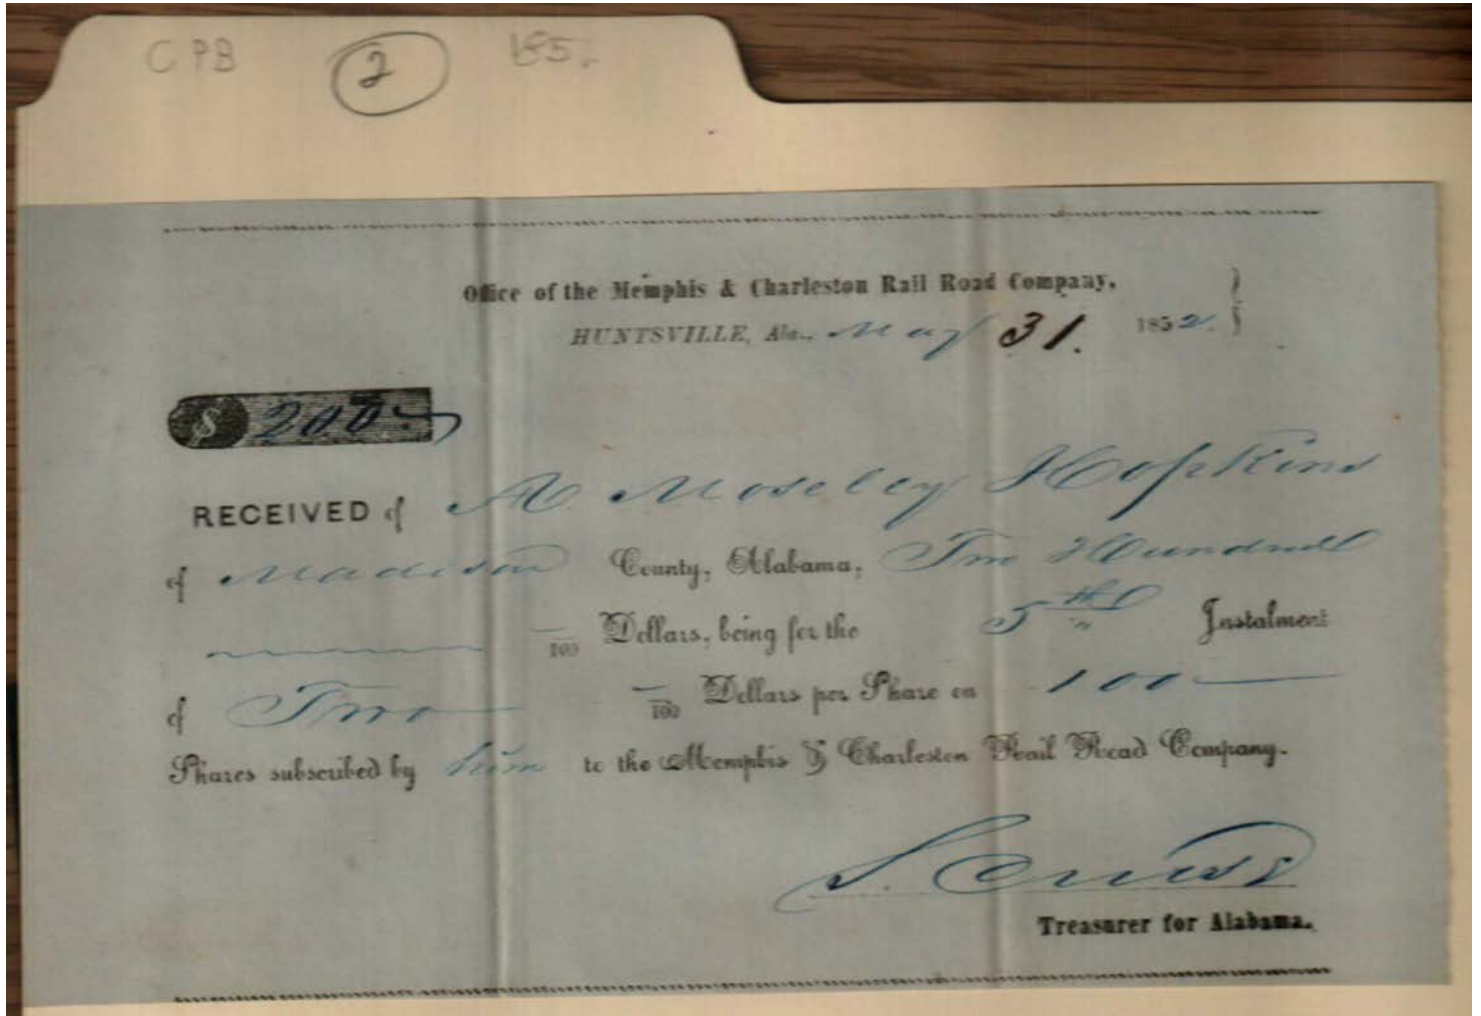 CPB 2 1852
Office of the Memphis & Charleston Rail Road Company,
HUNTSVILLE, Ala., May 31. 1852.
$ 200
RECEIVED of A. Moseley Hopkins
of Madison County, Alabama, Two Hundred
/100 Dollars, being for the 5th Instalment
of Two /100 Dollars per Share on 100
Shares subscribed by him to the Memphis & Charleston Rail Road Company.
S. Cruse
Treasurer for Alabama.